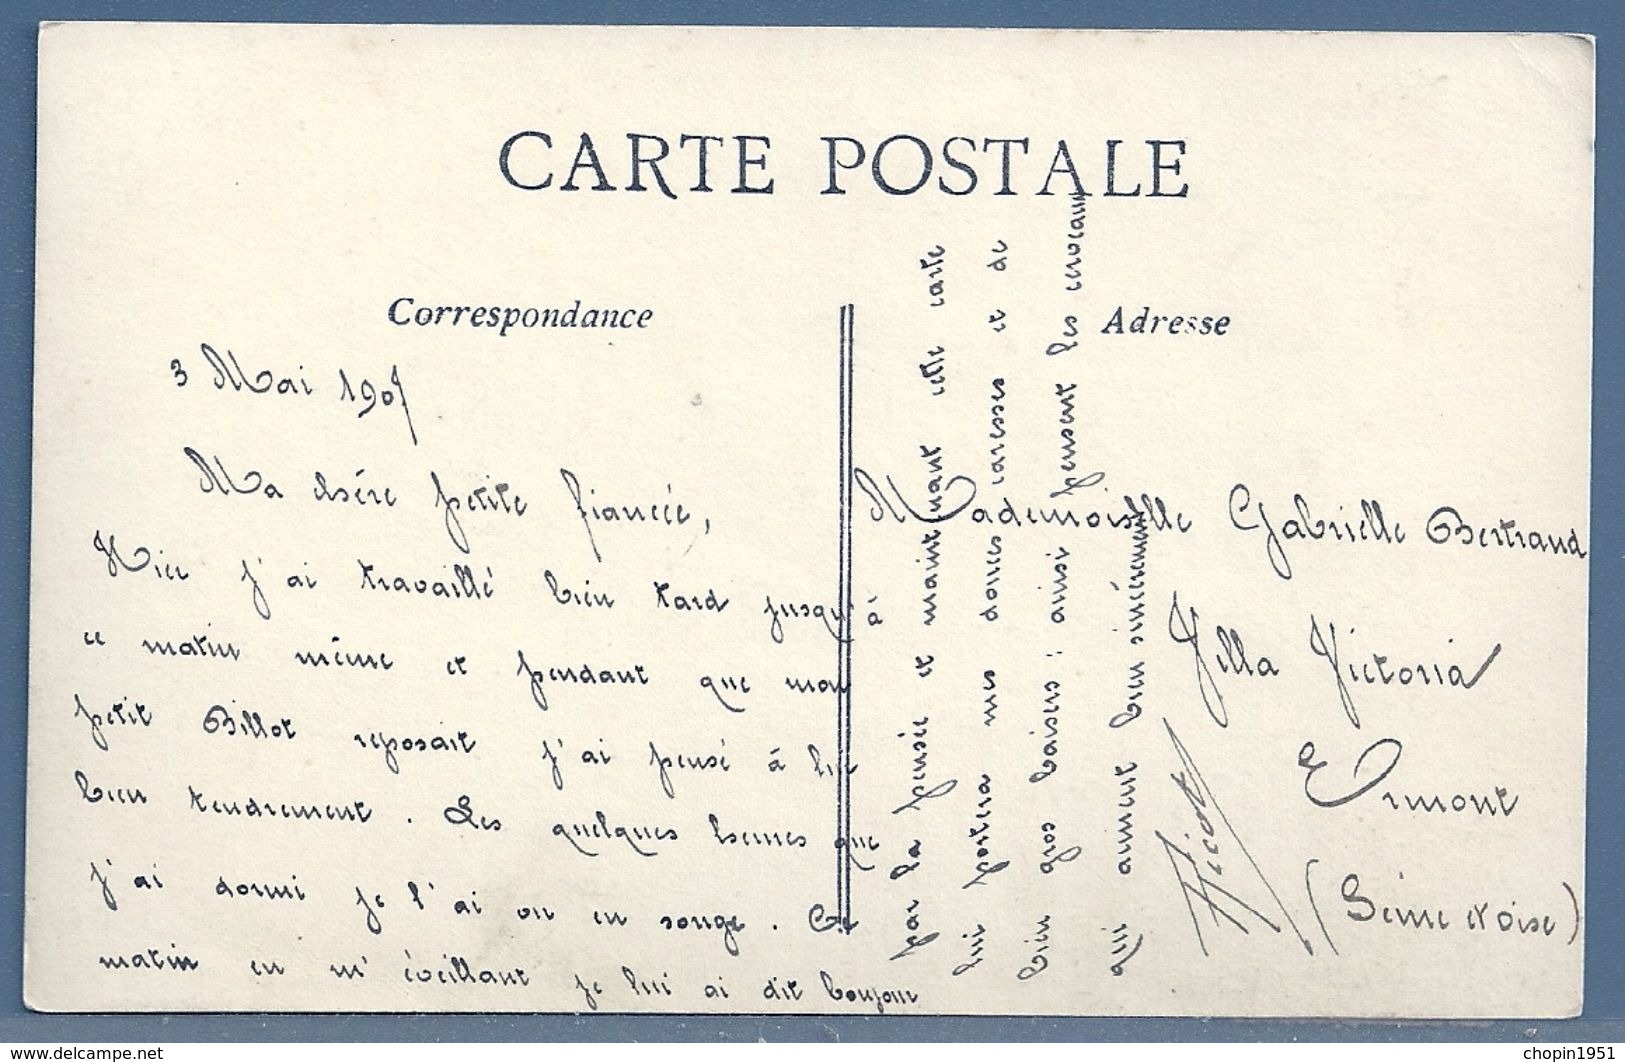 CARTE POSTALE
Correspondance
Adresse
3 Mai 1907
Ma chère petite fiancée,
Hier j'ai travaillé bien tard jusqu'à
ce matin même et pendant que mon
petit Billot reposait j'ai pensé à lui
bien tendrement. Les quelques heures que
j'ai dormi je l'ai vu en songe. Ce
matin en m'éveillant je lui ai dit bonjour
par la pensée et maintenant cette carte
lui portera mes douces caresses et de
bien gros baisers : ainsi pensent les cerveaux
qui aiment bien sincèrement
Mademoiselle Gabrielle Bertrand
Villa Victoria
Ermont
(Seine et Oise)
delcampe.net
chopin1951